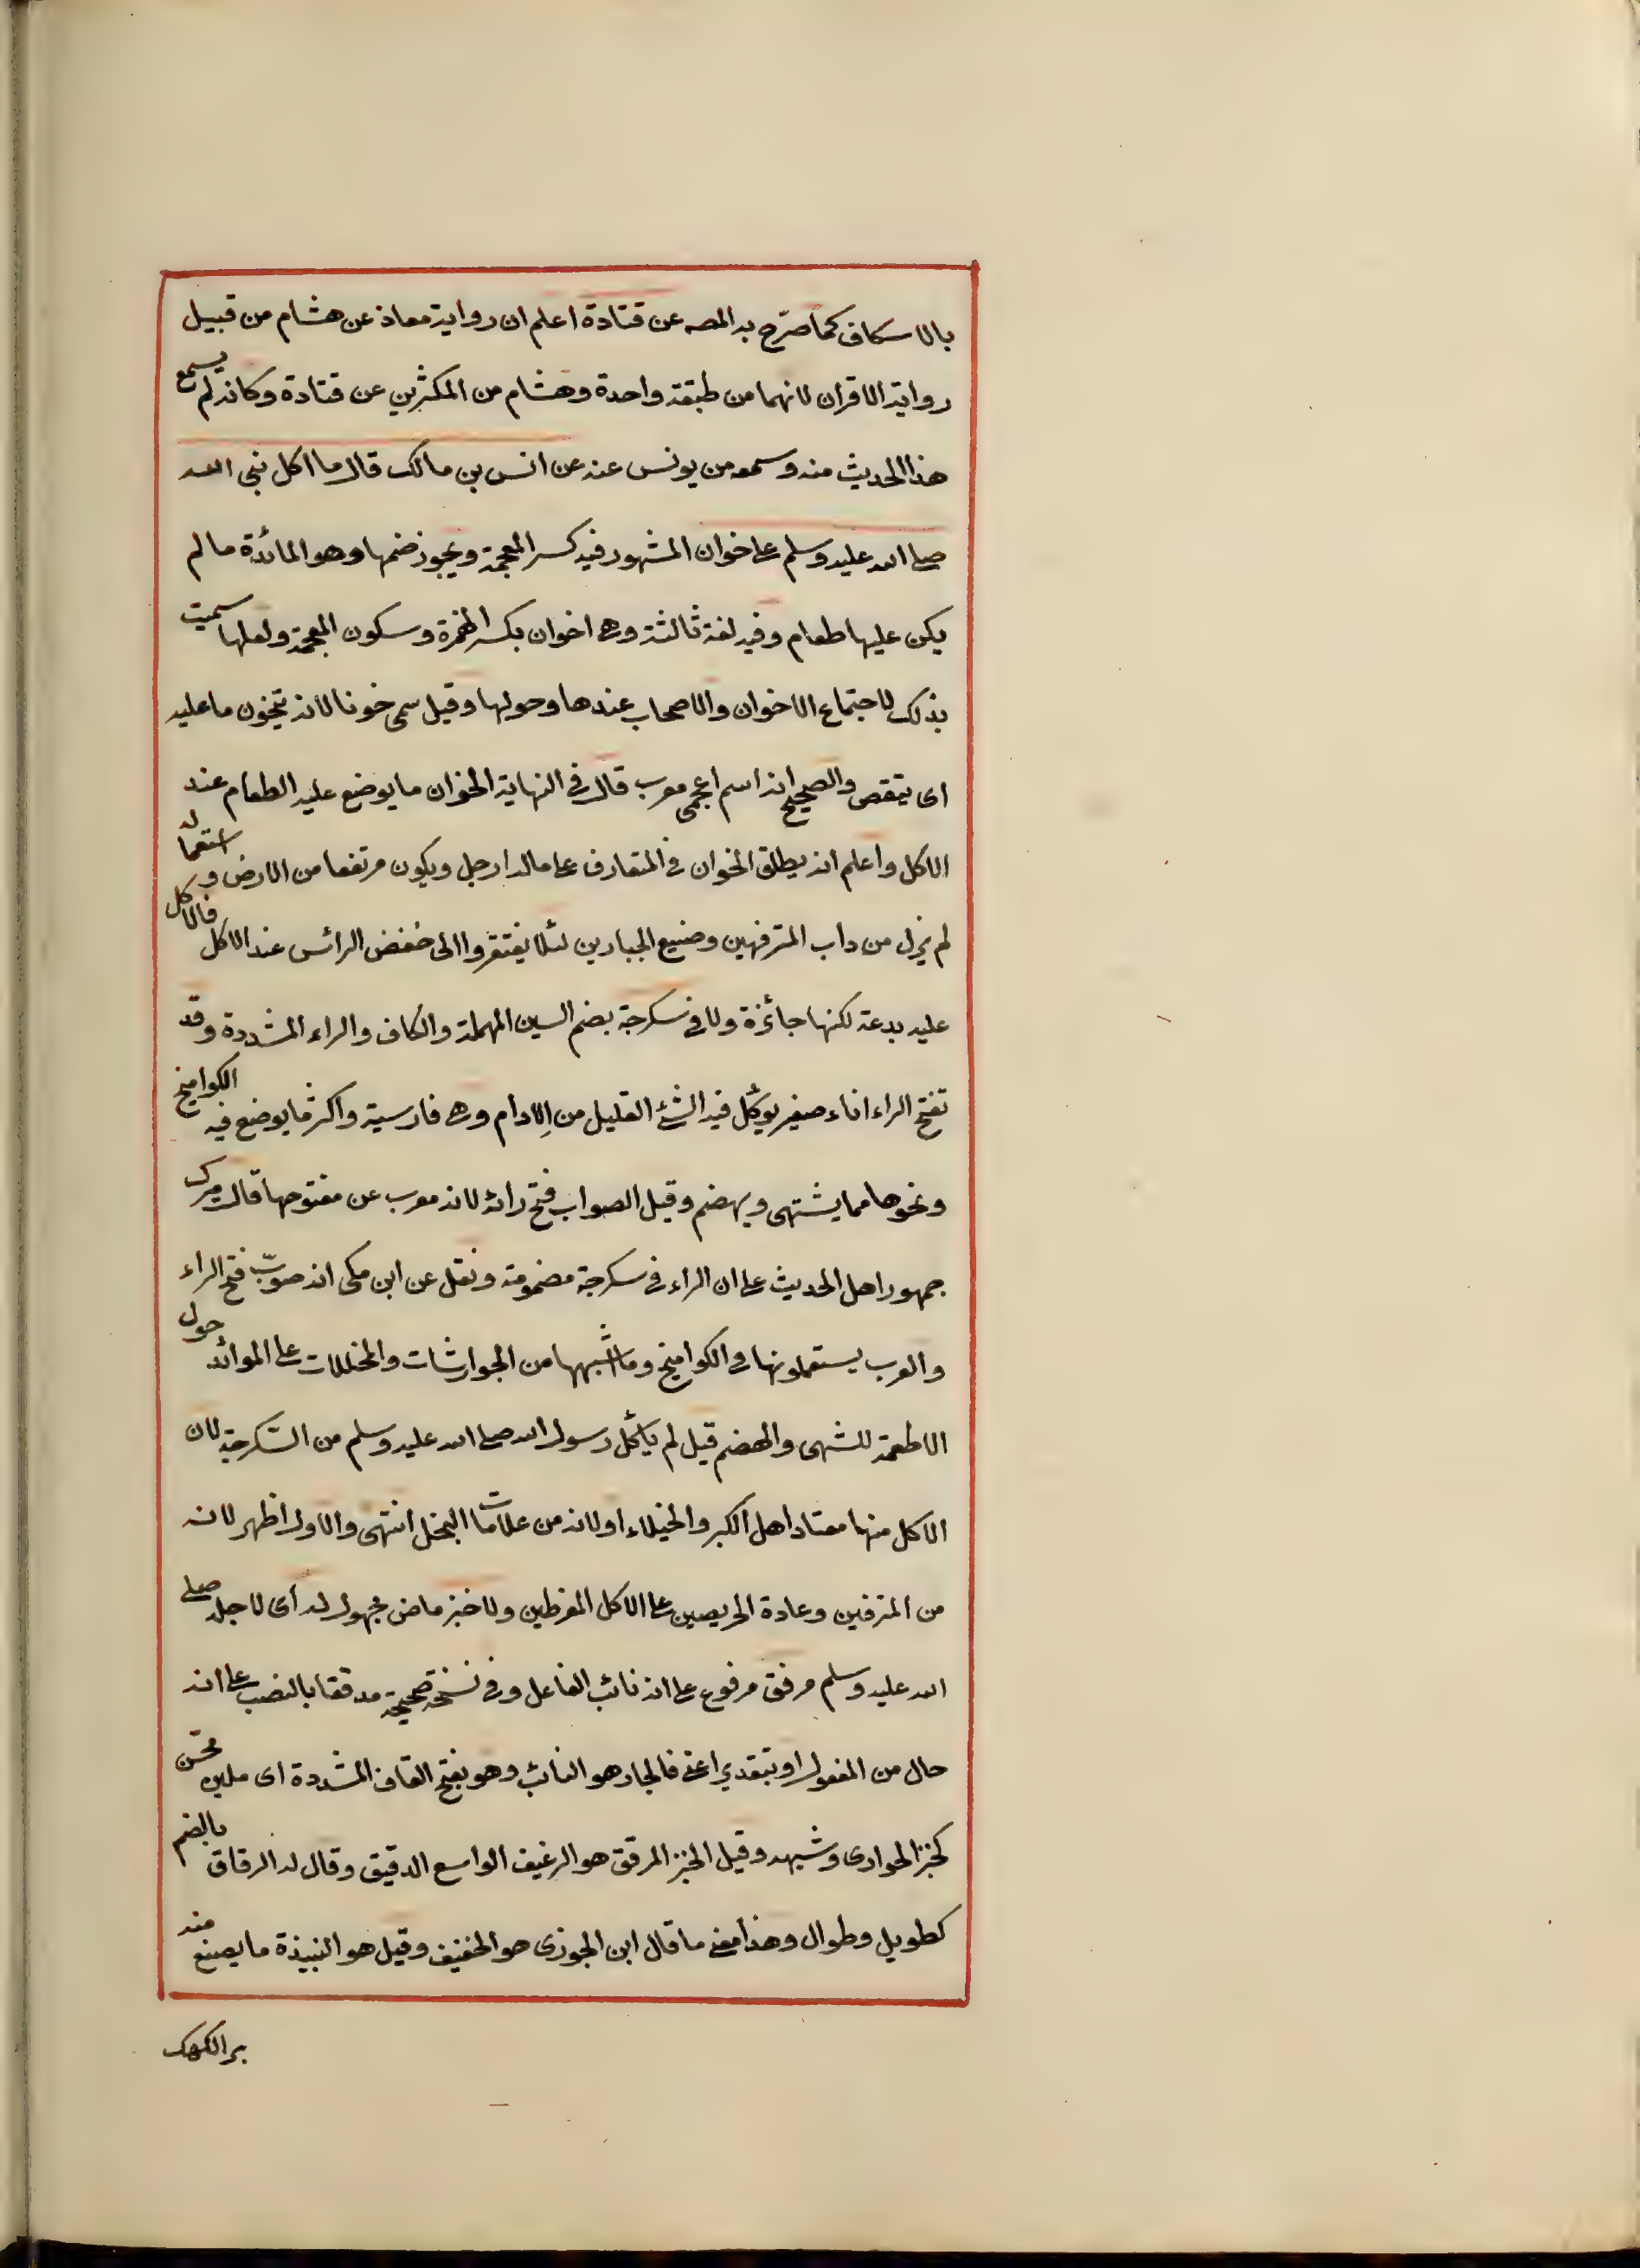 بالاسكاف كما صرّح به المصه عن قتادة اعلم ان رواية معاذ عن هشام من قبيل
رواية الاقران لانهما من طبقة واحدة وهشام من المكثرين عن قتادة وكانه لم يسمع
هذا الحديث منه وسمعه من يونس عنه عن انس بن مالك قال ما اكل نبى الله
صلى الله عليه وسلم على خوان المشهور فيه كسر المعجمة ويجوز ضمها وهو المائدة ما لم
يكن عليها طعام وفيه لغة ثالثة وهى اخوان بكسر الهمزة وسكون المعجمة ولعلها سميت
بذلك لاجتماع الاخوان والاصحاب عندها وحولها وقيل سمى خونا لانه يتخون ما عليه
اى يتقص والصحيح انه اسم اعجمى معرب قال فى النهاية الخوان ما يوضع عليه الطعام عند
الاكل واعلم انه يطلق الخوان فى المتعارف على ماله ارجل ويكون مرتفعا من الارض و استعماله
لم يزل من داب المترفهين وصنيع الجبارين لئلا يفتقروا الى خفض الرائس عند الاكل فالاكل
عليه بدعة لكنها جائزة ولا فى سكرجة بضم السين المهملة والكاف والراء المشددة وقد
تفتح الراء اناء صغير يوكل فيه الشئ القليل من الادام وهى فارسية واكثر ما يوضع فيه الكواميخ
ونحوها مما يشتهى ويهضم وقيل الصواب فتح رائه لانه معرب عن مفتوحها قال ميرك
جمهور اهل الحديث على ان الراء فى سكرجة مضمومة ونقل عن ابن مكى انه صوّب فتح الراء
والعرب يستعملونها فى الكواميخ وما اشبهها من الجوارشات والمخللات على الموائد حول
الاطعمة للتشهى والهضم قيل لم يأكل رسول الله صلى الله عليه وسلم من السّكرجة لان
الاكل منها معتاد اهل الكبر والخيلاء او لانه من علامات البخل انتهى والاول اظهر لانه
من المترفين وعادة الحريصين على الاكل المفرطين ولا خبز ماض مجهول له أى لاجله صلى
الله عليه وسلم مرقق مرفوع على انه نائب الفاعل وفى نسخة صحيحة مدققا بالنصب على انه
حال من المفعول او بتقدير اعنى فالجار هو النائب وهو بفتح القاف المشددة اى ملين محسن
كخبز الحوارى وشبهه وقيل الخبز المرقق هو الرغيف الواسع الدقيق وقال له الرقاق بالضم
كطويل وطوال وهذا معنى ما قال ابن الجوزى هو الخفيف وقيل هو النبيذة ما يصنع منه